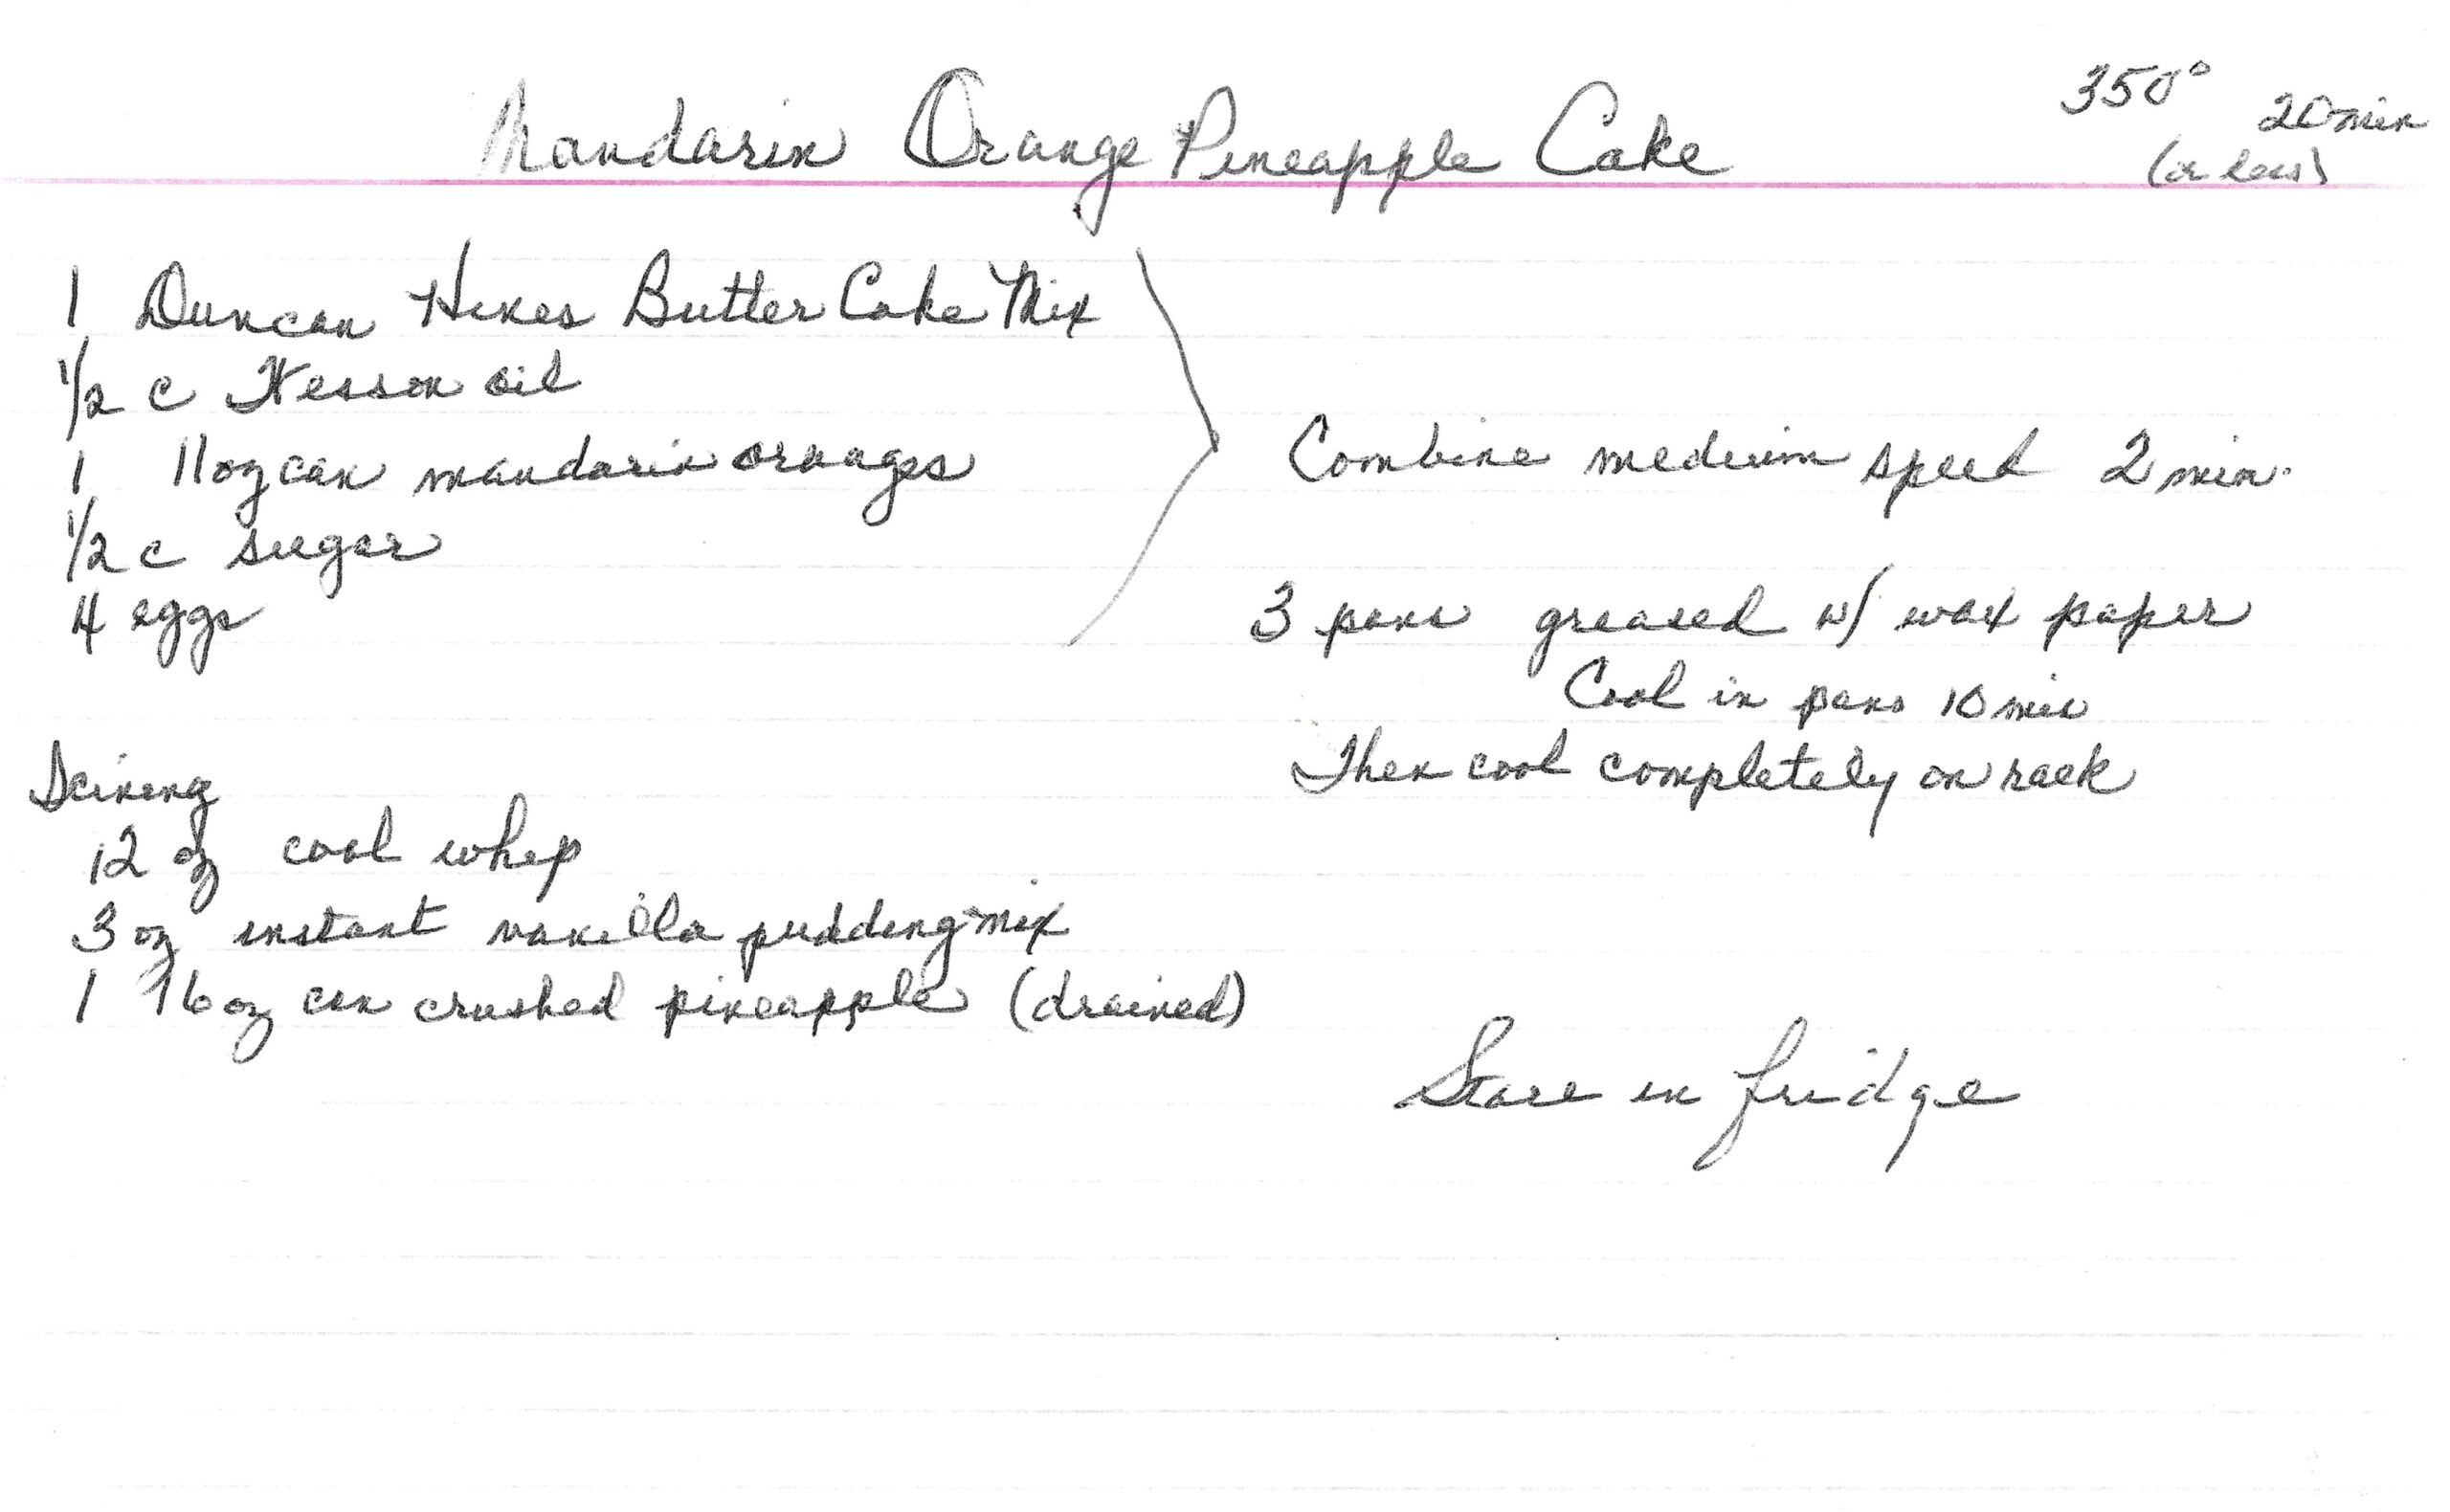 Mandarin Orange Pineapple Cake
350° 20 min
(or less)
1 Duncan Hines Butter Cake Mix
1/2 c Wesson oil
1 11 oz can mandarin oranges
1/2 c sugar
4 eggs
Combine medium speed 2 min.
3 pans greased w/ wax paper
Cool in pans 10 min
Then cool completely on rack
Icining
12 oz cool whip
3 oz instant vanilla pudding mix
1 16 oz can crushed pineapple (drained)
Store in fridge